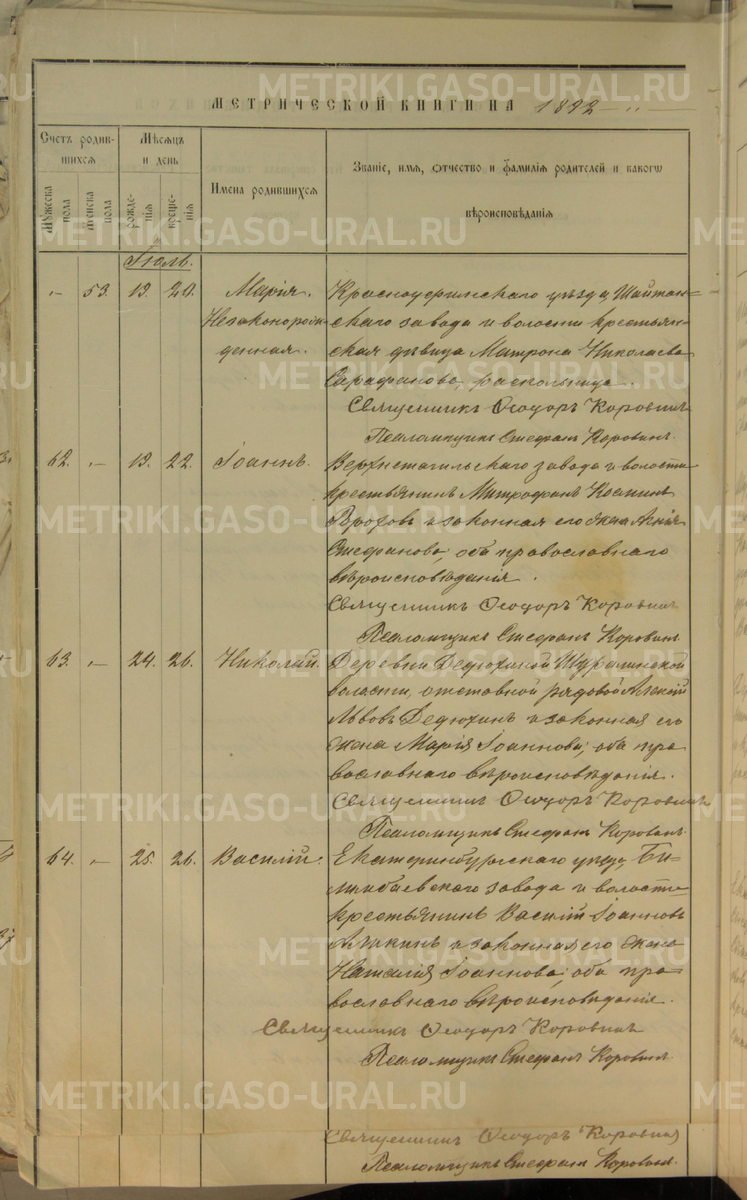 МЕТРИЧЕСКОЙ КНИГИ НА 1892
Счетъ родив-
шихся
Мѣсяцъ
и день
Мужеска пола
Женска пола
рожде-
нія
креще-
нія
Имена родившихся
Званіе, имя, отчество и фамилія родителей и какого
вѣроисповѣданія
Іюль.
" 53. 19. 20. Марія. Красноуфимскаго уѣзда Шайтан-
Незаконорож- скаго завода и волости крестьян-
денная. ская дѣвица Матрона Николаева
Сарафанова, раскольница.
Священникъ Ѳеодоръ Коровинъ
Псаломщикъ Стефанъ Коровинъ.
62. " 19. 22. Іоаннъ. Верхнетагильскаго завода и волости
крестьянинъ Митрофанъ Косминъ
и законная его жена
Стефанова, оба православнаго
вѣроисповѣданія.
Священникъ Ѳеодоръ Коровинъ
Псаломщикъ Стефанъ Коровинъ
63. " 24. 26. Николай. Деревни Дедюхиной Шуралинской
волости, отставной рядовой Алексій
Львовъ Дедюхинъ и законная его
жена Марія Іоаннова, оба пра-
вославнаго вѣроисповѣданія.
Священникъ Ѳеодоръ Коровинъ
Псаломщикъ Стефанъ Коровинъ.
64. " 25. 26. Василій. Екатеринбургскаго уѣзда, Би-
лимбаевскаго завода и волости
крестьянинъ Василій Іоанновъ
и законная его жена
Наталія Іоаннова, оба пра-
вославнаго вѣроисповѣданія.
Священникъ Ѳеодоръ Коровинъ
Псаломщикъ Стефанъ Коровинъ
Священникъ Ѳеодоръ Коровинъ
Псаломщикъ Стефанъ Коровинъ.
METRIKI.GASO-URAL.RU